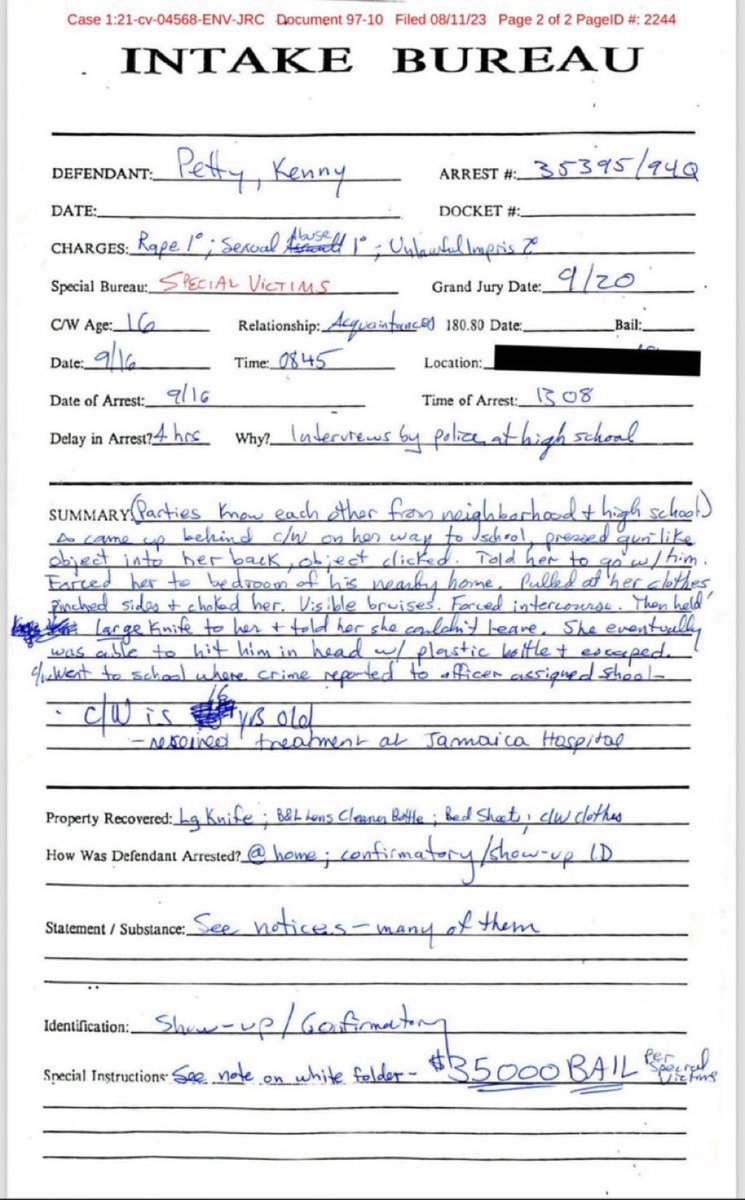 Case 1:21-cv-04568-ENV-JRC Document 97-10 Filed 08/11/23 Page 2 of 2 PageID #: 2244
INTAKE BUREAU
DEFENDANT: Petty, Kenny ARREST #: 35395/94Q
DATE: DOCKET #:
CHARGES: Rape 1°; Sexual Abuse 1°; Unlawful Impris 2°
Special Bureau: SPECIAL VICTIMS Grand Jury Date: 9/20
C/W Age: 16 Relationship: Acquaintances 180.80 Date: Bail:
Date: 9/16 Time: 0845 Location:
Date of Arrest: 9/16 Time of Arrest: 1308
Delay in Arrest? 4 hrs Why? Interviews by police at high school
SUMMARY (Parties know each other from neighborhood + high school)
∆ came up behind c/w on her way to school, pressed gun like
object into her back, object clicked. Told her to go w/ him.
Forced her to bedroom of his nearby home. Pulled at her clothes
pinched sides + choked her. Visible bruises. Forced intercourse. Then held
large knife to her + told her she couldn't leave. She eventually
was able to hit him in head w/ plastic bottle + escaped.
c/w went to school where crime reported to officer assigned shool-
· C/W is 16 yrs old
- received treatment at Jamaica Hospital
Property Recovered: Lg Knife; B&L Lens Cleaner Bottle; Bed Sheets; c/w clothes
How Was Defendant Arrested? @ home; confirmatory/show-up ID
Statement / Substance: See notices - many of them
Identification: Show-up / Confirmatory
Special Instructions: See note on white folder - $35000 BAIL Per Special Victims